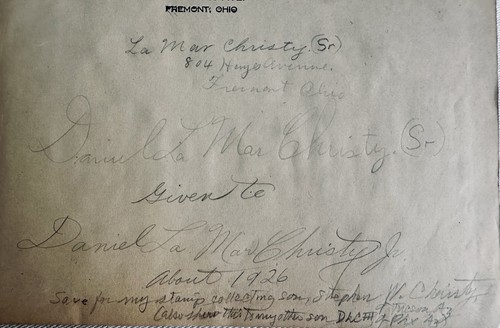 FREMONT, OHIO
La Mar Christy (Sr)
804 Hayes Avenue.
Fremont Ohio
Daniel La Mar Christy (Sr)
Given to
Daniel La Mar Christy Jr.
About 1926
Save for my stamp collecting son, Stephen W. Christy
(also show this to my other son D.L.C. III